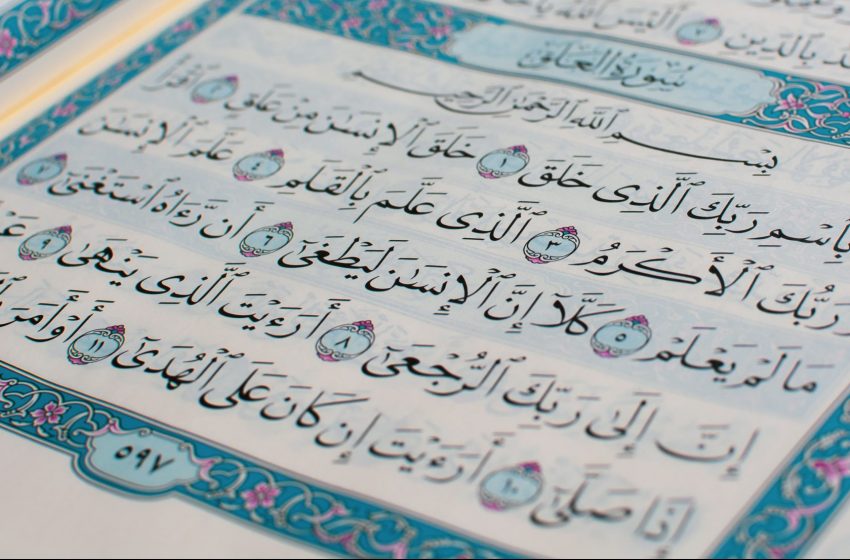 بِٱلدِّينِ ٧ أَلَيْسَ ٱللَّهُ
سُورَةُ العَلَقِ
بِسْمِ ٱللَّهِ ٱلرَّحْمَٰنِ ٱلرَّحِيمِ
بِٱسْمِ رَبِّكَ ٱلَّذِى خَلَقَ ١ خَلَقَ ٱلْإِنسَٰنَ مِنْ عَلَقٍ ٢ ٱقْرَأْ
وَرَبُّكَ ٱلْأَكْرَمُ ٣ ٱلَّذِى عَلَّمَ بِٱلْقَلَمِ ٤ عَلَّمَ ٱلْإِنسَٰنَ
مَا لَمْ يَعْلَمْ ٥ كَلَّآ إِنَّ ٱلْإِنسَٰنَ لَيَطْغَىٰٓ ٦ أَن رَّءَاهُ ٱسْتَغْنَىٰٓ ٧
إِنَّ إِلَىٰ رَبِّكَ ٱلرُّجْعَىٰٓ ٨ أَرَءَيْتَ ٱلَّذِى يَنْهَىٰ ٩
إِذَا صَلَّىٰٓ ١٠ أَرَءَيْتَ إِن كَانَ عَلَى ٱلْهُدَىٰٓ ١١ أَوْ أَمَرَ
٥٩٧